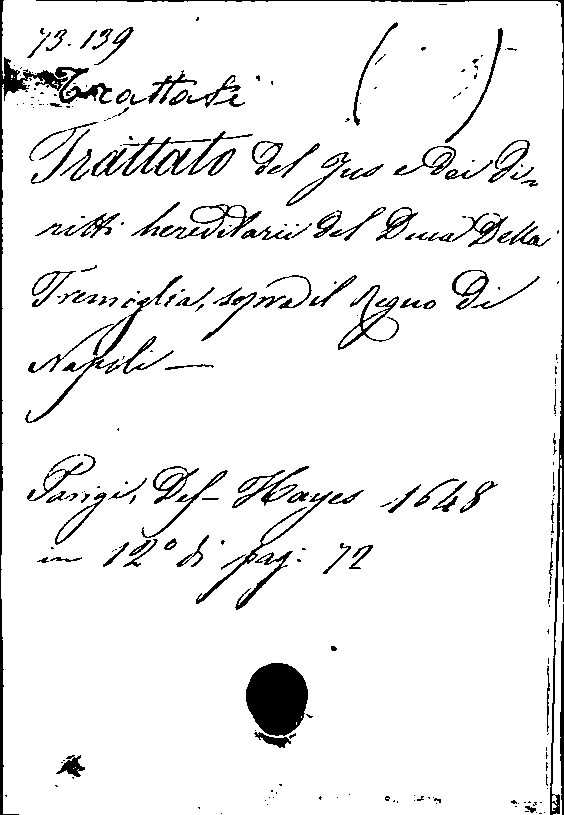 73.139
Trattati ( )
Trattato del Jus e dei di-
ritti hereditarii del Duca Della
Tremoglia, sopra il Regno di
Napoli —
Parigi, Des-Hayes 1648
in 12° di pag: 72